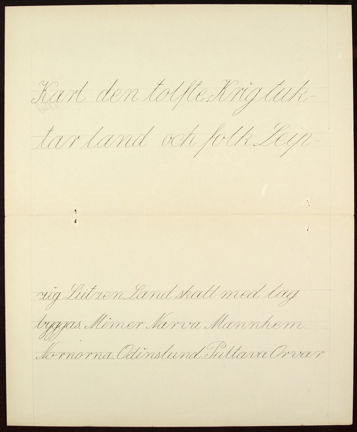 Karl den tolfte. Krig tuk-
tar land och folk Leip-
zig Lützen Land skall med lag
byggas Mimer Narva Mannhem
Nornorna. Odinslund Pultava Orvar